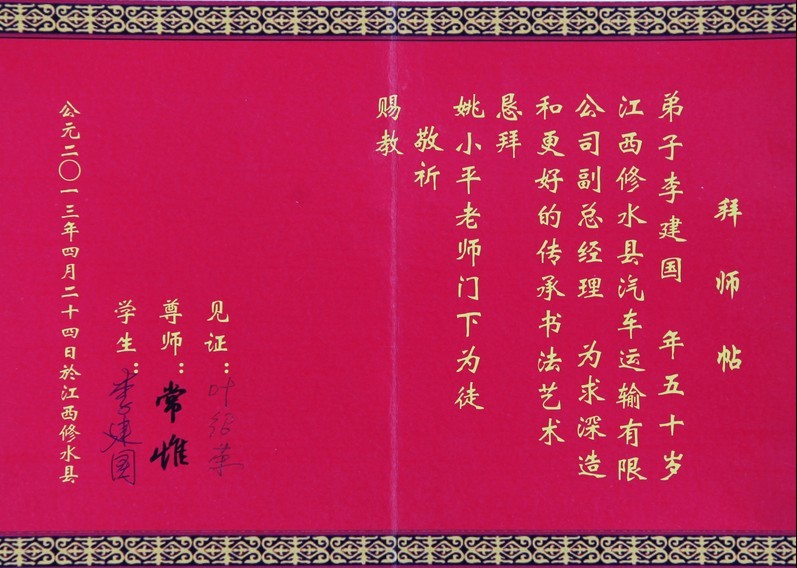 拜师帖
弟子李建国 年五十岁
江西修水县汽车运输有限
公司副总经理 为求深造
和更好的传承书法艺术
恳拜
姚小平老师门下为徒
敬祈
赐教
见证：
尊师：常惟
学生：李建国
公元二〇一三年四月二十四日於江西修水县